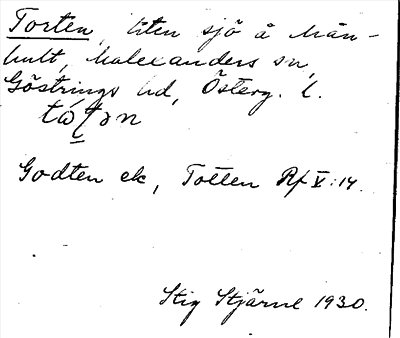 Torten, liten sjö å Mån-
hult, Malexanders sn,
Göstrings hd, Österg. l.
Godten ek, Totten Rf V:14.
Stig Stjärne 1930.